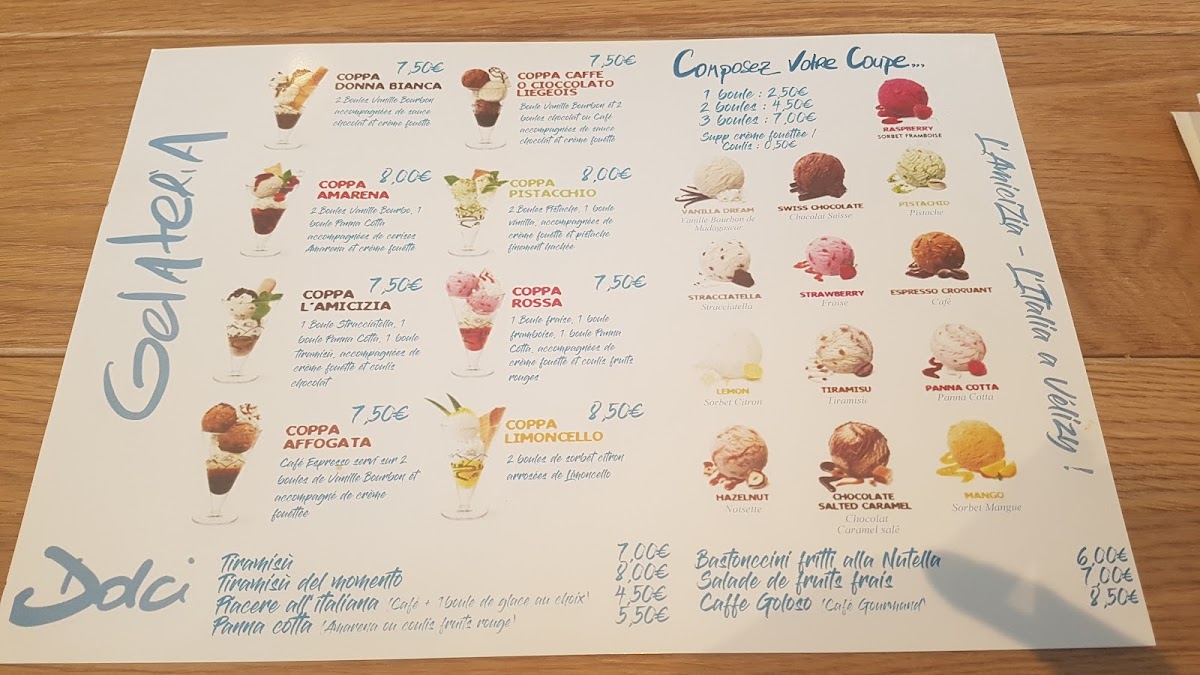 GelAteriA
7,50€
COPPA
DONNA BIANCA
2 Boules Vanille Bourbon
accompagnées de sauce
chocolat et crème fouettée
7,50€
COPPA CAFFE
O CIOCCOLATO
LIEGEOIS
Boule Vanille Bourbon et 2
boules chocolat ou Café
accompagnées de sauce
chocolat et crème fouettée
8,00€
COPPA
AMARENA
2 Boules Vanille Bourbo, 1
boule Panna Cotta
accompagnées de cerises
Amarena et crème fouettée
8,00€
COPPA
PISTACCHIO
2 Boules Pistache, 1 boule
vanille, accompagnées de
crème fouettée et pistache
finement hachée
7,50€
COPPA
L'AMICIZIA
1 Boule Stracciatella, 1
boule Panna Cotta, 1 boule
tiramisù, accompagnées de
crème fouettée et coulis
chocolat
7,50€
COPPA
ROSSA
1 Boule fraise, 1 boule
framboise, 1 boule Panna
Cotta, accompagnées de
crème fouettée et coulis fruits
rouges
7,50€
COPPA
AFFOGATA
Café Espresso servi sur 2
boules de Vanille Bourbon et
accompagné de crème
fouettée
8,50€
COPPA
LIMONCELLO
2 boules de sorbet citron
arrosées de Limoncello
Composez Votre Coupe...
1 boule : 2,50€
2 boules : 4,50€
3 boules : 7,00€
Supp crème fouettée /
Coulis : 0,50€
RASPBERRY
SORBET FRAMBOISE
VANILLA DREAM
Vanille Bourbon de
Madagascar
SWISS CHOCOLATE
Chocolat Suisse
PISTACHIO
Pistache
STRACCIATELLA
Stracciatella
STRAWBERRY
Fraise
ESPRESSO CROQUANT
Café
LEMON
Sorbet Citron
TIRAMISU
Tiramisu
PANNA COTTA
Panna Cotta
HAZELNUT
Noisette
CHOCOLATE
SALTED CARAMEL
Chocolat
Caramel salé
MANGO
Sorbet Mangue
L'AmiciZia - L'Italia a Vélizy !
Dolci
Tiramisù 7,00€
Tiramisù del momento 8,00€
Piacere all'italiana (Café + 1 boule de glace au choix) 4,50€
Panna cotta (Amarena ou coulis fruits rouge) 5,50€
Bastonccini fritti alla Nutella 6,00€
Salade de fruits frais 7,00€
Caffe Goloso (Café Gourmand) 8,50€